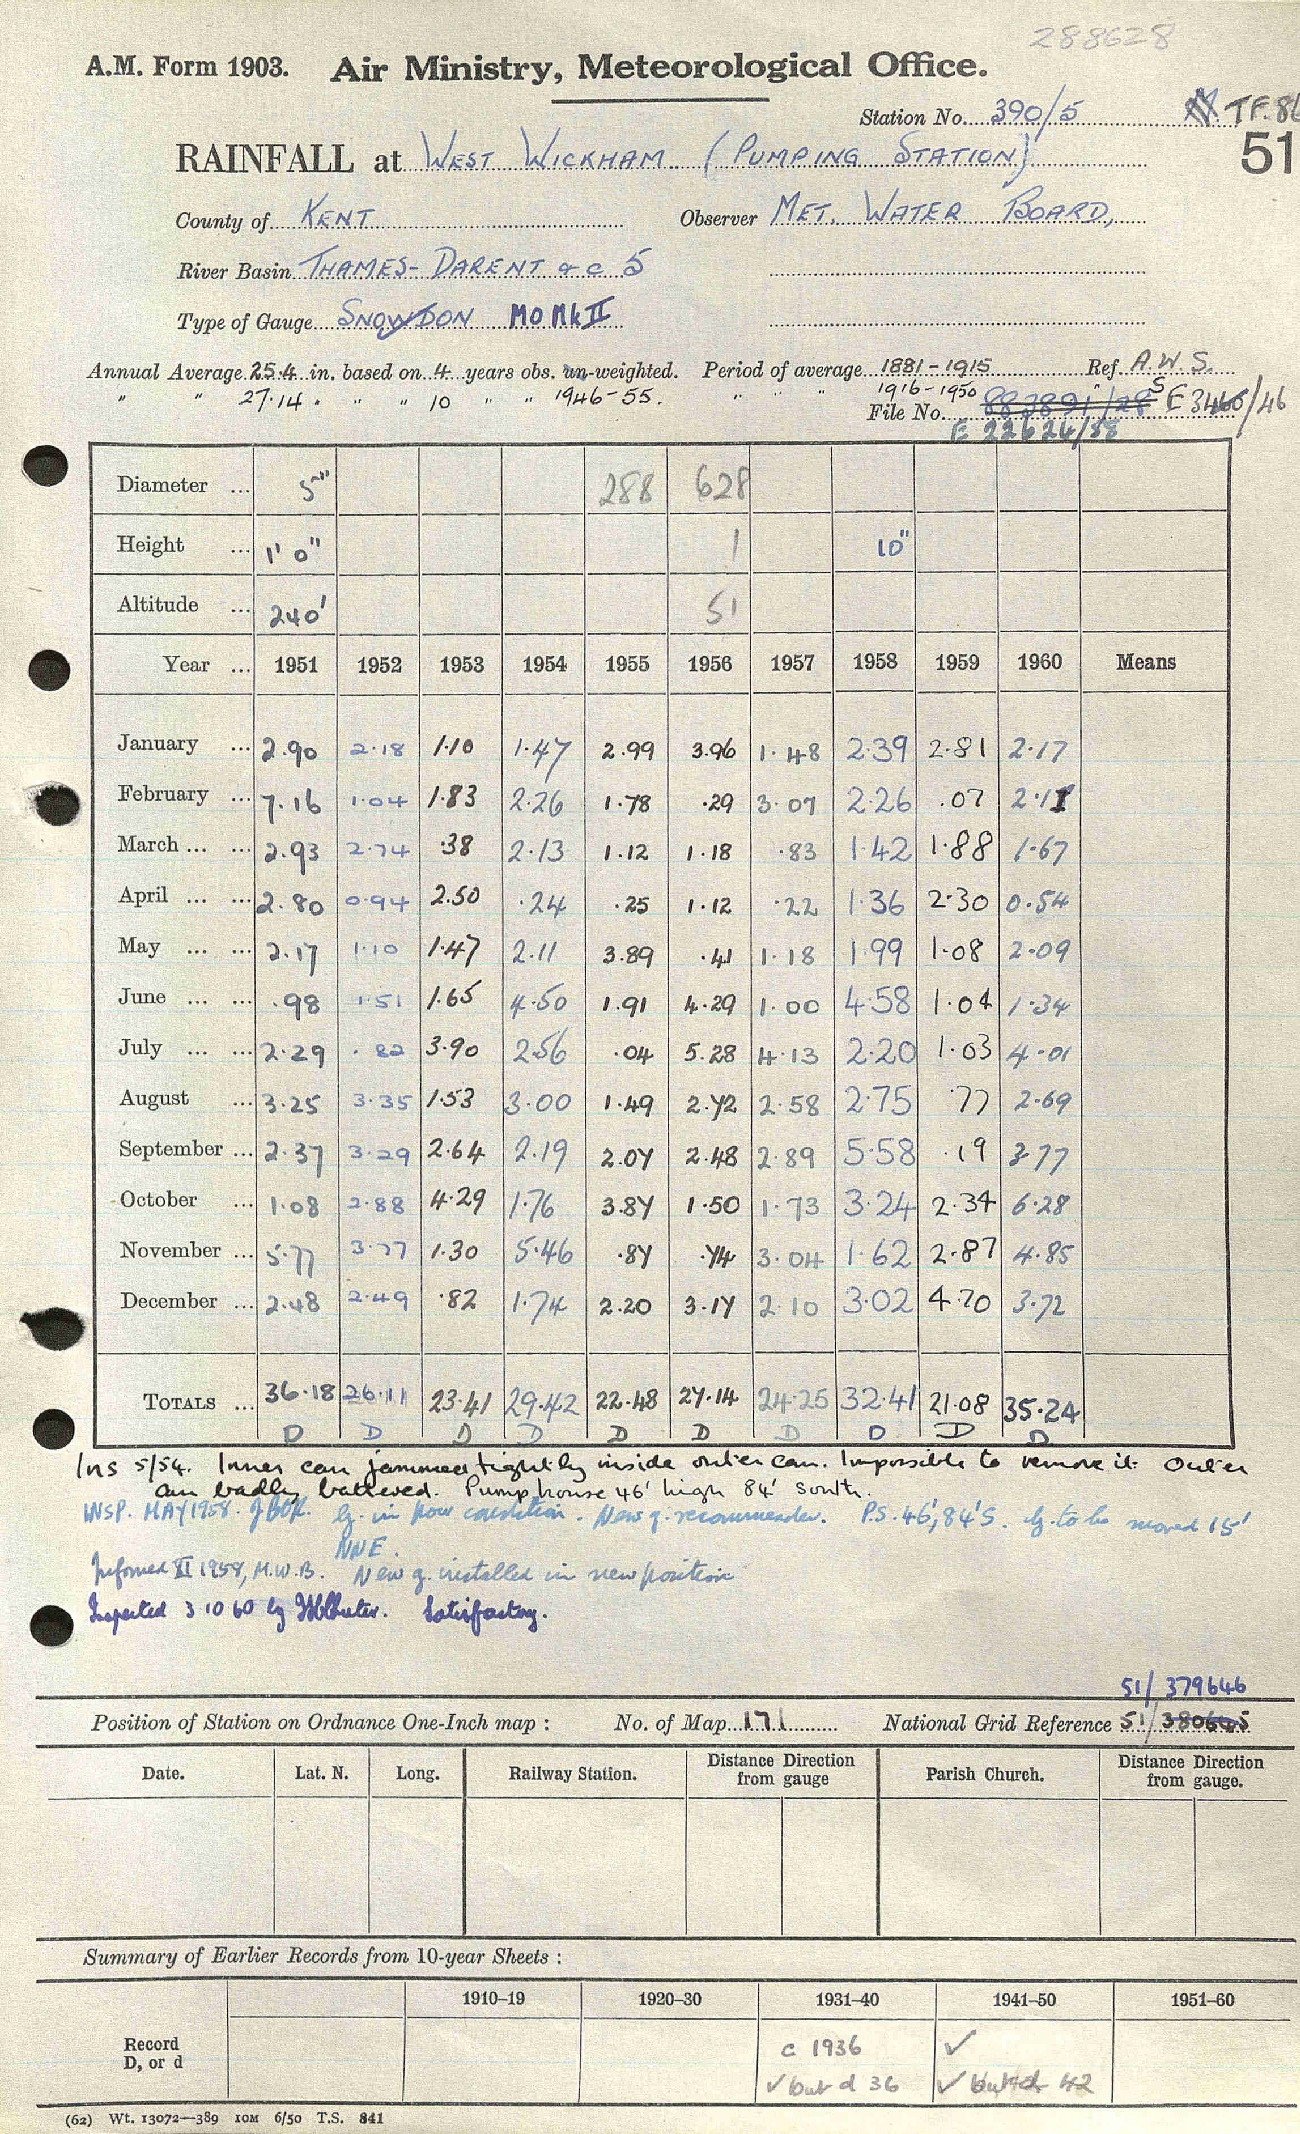 288628
A.M. Form 1903. Air Ministry, Meteorological Office.
Station No. 390/5 TF.86
51
RAINFALL at WEST WICKHAM (PUMPING STATION)
County of KENT Observer MET. WATER BOARD,
River Basin THAMES-DARENT &c 5
Type of Gauge SNOWDON MO Mk II
Annual Average 25.4 in. based on 4 years obs. un-weighted. Period of average 1881-1915 Ref A.W.S.
" " 27.14 " " " 10 " " 1946-55. " " " 1916-1950
File No. 883891/28 S E 3460/46
E 22624/58
Diameter ... 5" 288 628
Height ... 1' 0" 1 10"
Altitude ... 240' 51
Year ... 1951 1952 1953 1954 1955 1956 1957 1958 1959 1960 Means
January ... 2.90 2.18 1.10 1.47 2.99 3.96 1.48 2.39 2.81 2.17
February ... 7.16 1.04 1.83 2.26 1.78 .29 3.07 2.26 .07 2.11
March ... ... 2.93 2.74 .38 2.13 1.12 1.18 .83 1.42 1.88 1.67
April ... ... 2.80 0.94 2.50 .24 .25 1.12 .22 1.36 2.30 0.54
May ... ... 2.17 1.10 1.47 2.11 3.89 .41 1.18 1.99 1.08 2.09
June ... ... .98 1.51 1.65 4.50 1.91 4.29 1.00 4.58 1.04 1.34
July ... ... 2.29 .82 3.90 2.56 .04 5.28 4.13 2.20 1.03 4.01
August ... 3.25 3.35 1.53 3.00 1.49 2.72 2.58 2.75 .77 2.69
September ... 2.37 3.29 2.64 2.19 2.07 2.48 2.89 5.58 .19 3.77
October ... 1.08 2.88 4.29 1.76 3.87 1.50 1.73 3.24 2.34 6.28
November ... 5.77 3.77 1.30 5.46 .87 .74 3.04 1.62 2.87 4.85
December ... 2.48 2.49 .82 1.74 2.20 3.17 2.10 3.02 4.70 3.72
TOTALS ... 36.18 26.11 23.41 29.42 22.48 27.14 24.25 32.41 21.08 35.24
D D D D D D D D D D
Ins 5/54. Inner can jammed tightly inside outer can. Impossible to remove it. Outer
can badly battered. Pump house 46' high 84' South.
INSP. MAY 1958. g. in poor condition. New g. recommended. P.S. 46', 84'S. g. to be moved 15'
NNE.
Informed XI 1958, M.W.B. New g. installed in new position
Inspected 3 10 60 by Satisfactory.
51/379646
Position of Station on Ordnance One-Inch map : No. of Map 171 National Grid Reference 51/380645
Date. Lat. N. Long. Railway Station. Distance Direction from gauge Parish Church. Distance Direction from gauge.
Summary of Earlier Records from 10-year Sheets :
1910–19 1920–30 1931–40 1941–50 1951–60
Record c 1936 ✓
D, or d ✓ but d 36 ✓ but d 42
(62) Wt. 13072—389 10M 6/50 T.S. 841